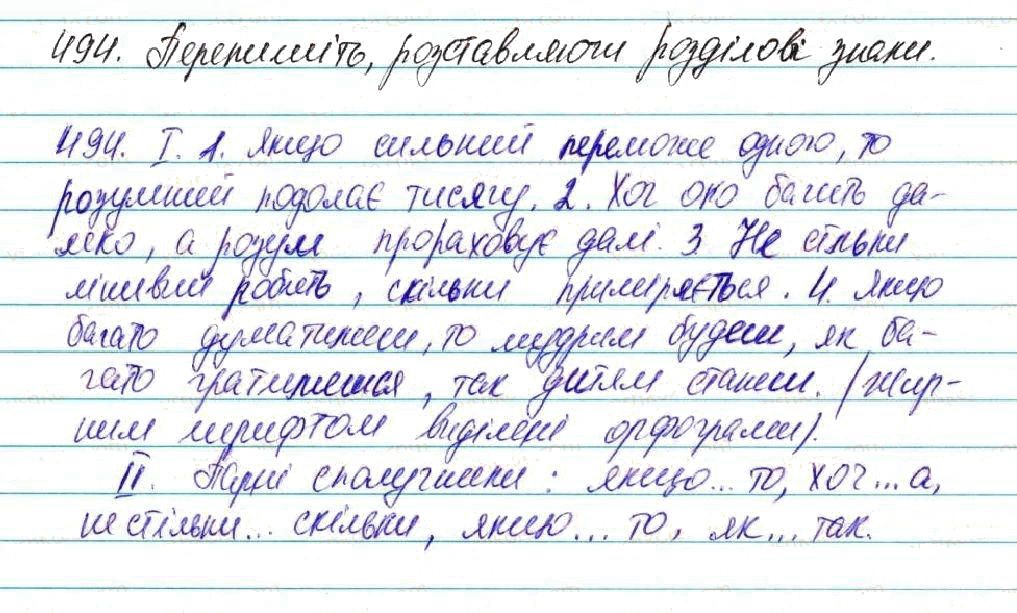 494. Перепишіть, розставляючи розділові знаки.
494. І. 1. Якщо сильний переможе одного, то
розумний подолає тисячу. 2. Хоч око бачить да-
леко, а розум прораховує далі. 3. Не стільки
лінивий робить, скільки примиряється. 4. Якщо
багато думатимеш, то мудрим будеш, як ба-
гато гратимешся, так дитям станеш. (Жир-
ним шрифтом виділені орфограми).
ІІ. Парні сполучники: якщо... то, хоч... а,
не стільки... скільки, якщо... то, як... так.